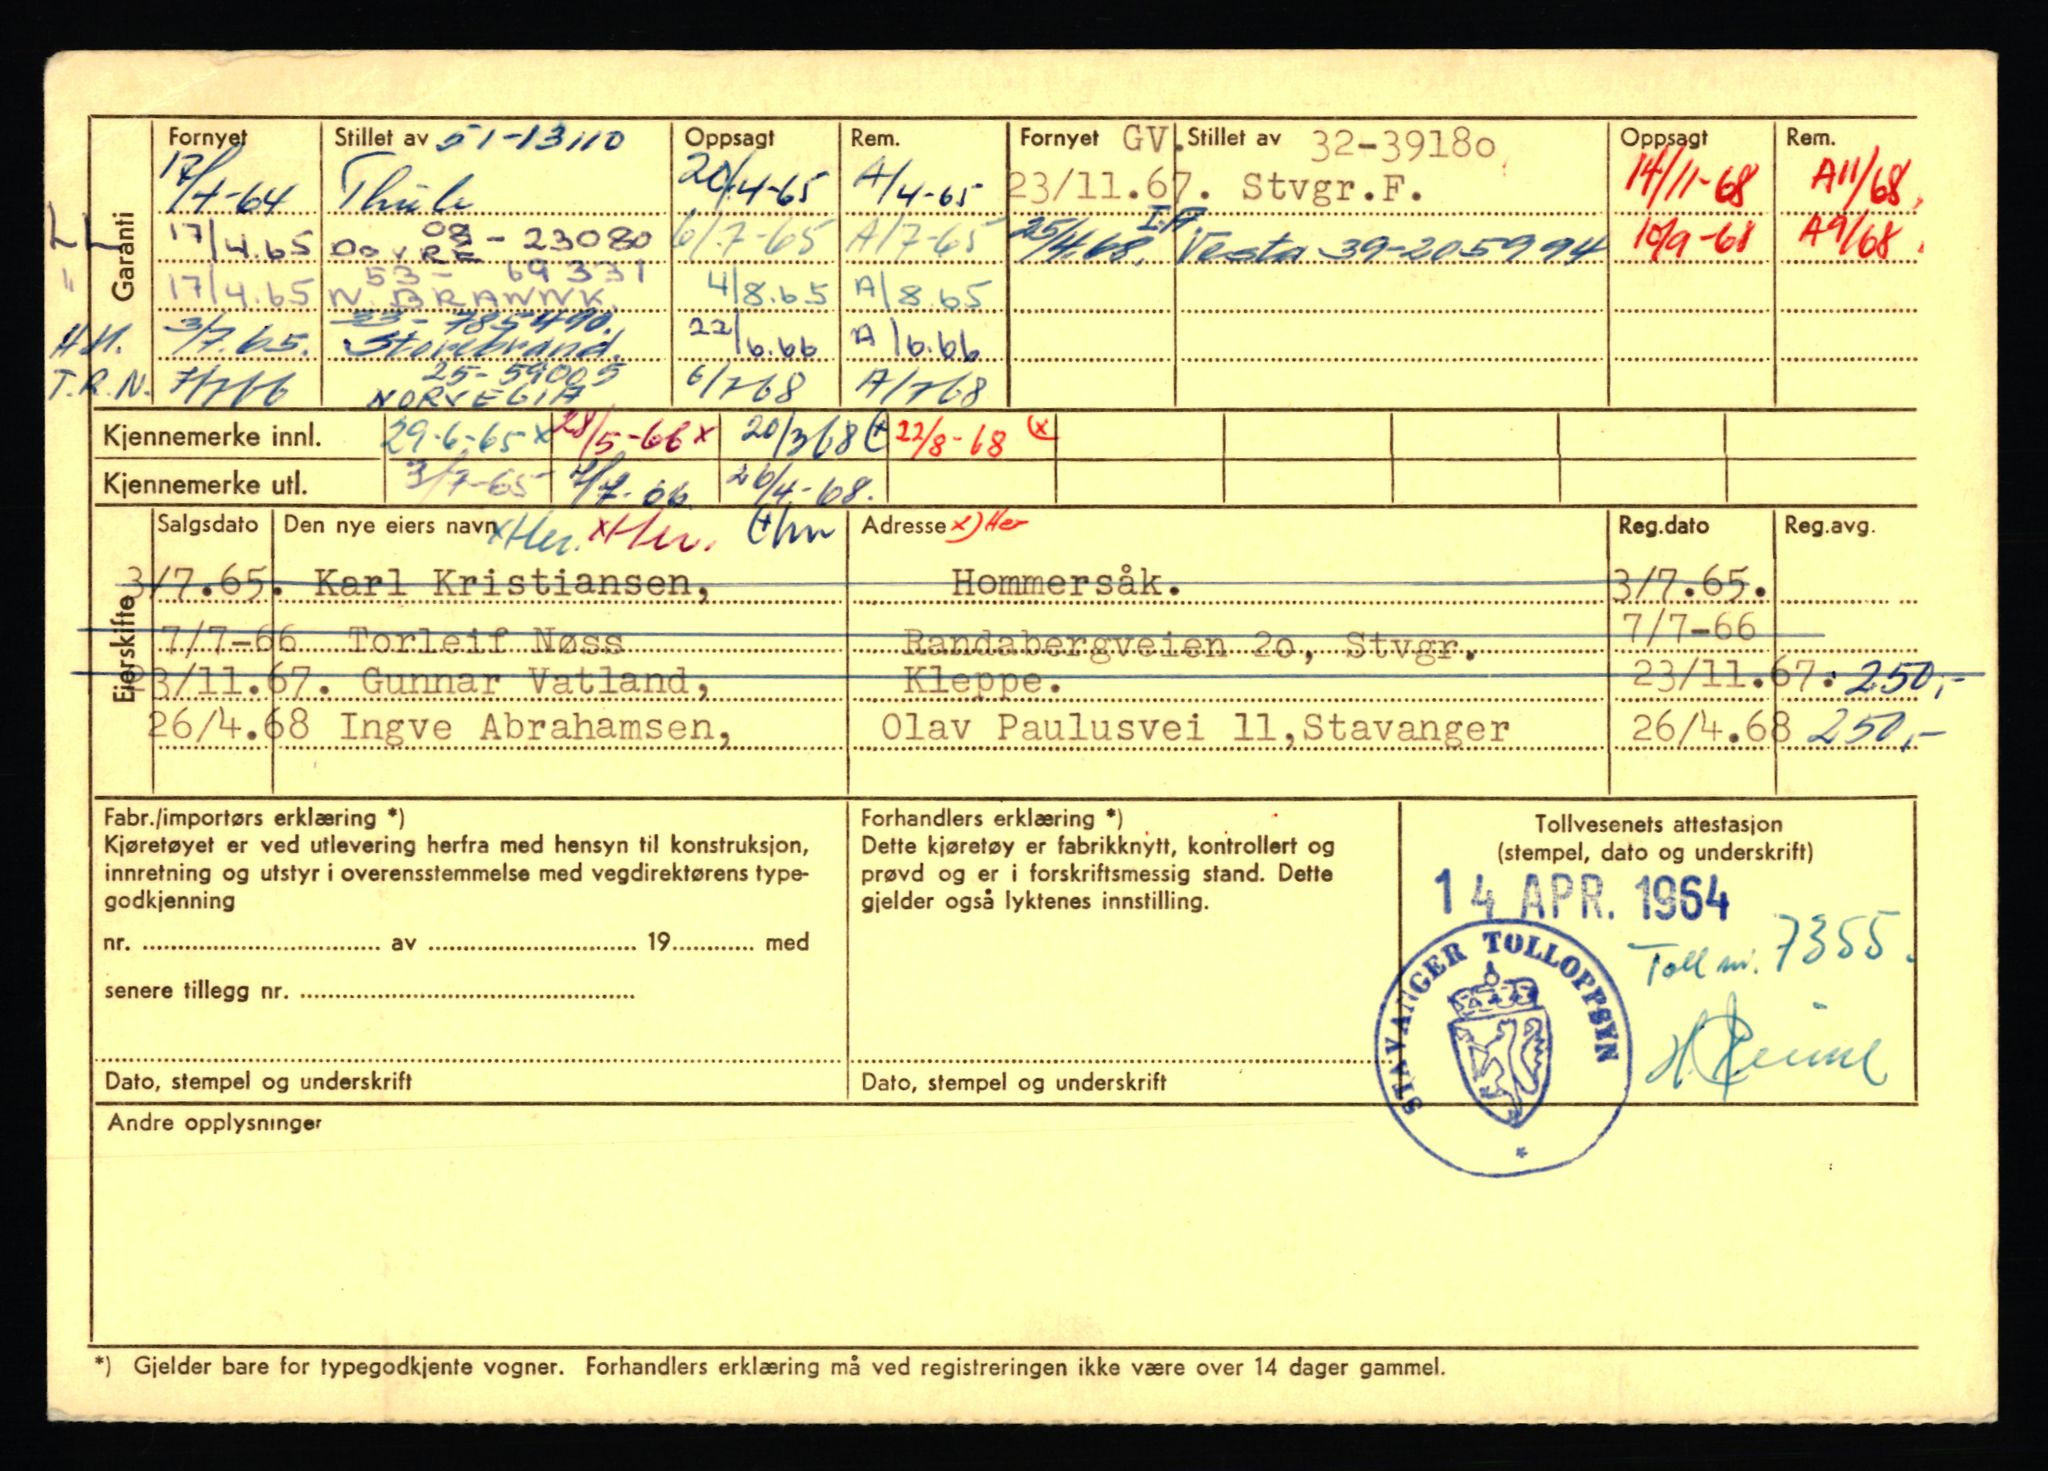 Garanti
Fornyet Stillet av 51-13110 Oppsagt Rem. Fornyet GV. Stillet av 32-3918o Oppsagt Rem.
17/4-64 Thule 20/4-65 A/4-65 23/11.67. Stvgr.F. 14/11-68 A11/68.
LL 17/4.65 DOVRE 08-23080 6/7-65 A/7-65 25/4.68. I.A Vesta 39-205994 10/9-68 A9/68.
" 17/4.65 53-69331 N. BRANNK. 4/8.65 A/8.65
H.H. 3/7.65. 33-785490. Storebrand. 22/6.66 A/6.66
T.R.N. 7/7 66 25-59005 NORVEGIA 6/2 68 A/2 68
Kjennemerke innl. 29-6-65 x 28/5-66 x 20/3 68 (+ 22/8-68 (x)
Kjennemerke utl. 3/7-65 7/7-66 26/4-68.
Eierskifte
Salgsdato Den nye eiers navn xHer. xHer. (+ hn Adresse x) Her Reg.dato Reg.avg.
3/7.65. Karl Kristiansen, Hommersåk. 3/7.65.
7/7-66 Torleif Nøss Randabergveien 2o, Stvgr. 7/7-66
23/11.67. Gunnar Vatland, Kleppe. 23/11.67. 250,-
26/4.68 Ingve Abrahamsen, Olav Paulusvei 11,Stavanger 26/4.68 250,-
Fabr./importørs erklæring *)
Kjøretøyet er ved utlevering herfra med hensyn til konstruksjon,
innretning og utstyr i overensstemmelse med vegdirektørens type-
godkjenning
nr. ........ av ........ 19........ med
senere tillegg nr. ........
Dato, stempel og underskrift
Forhandlers erklæring *)
Dette kjøretøy er fabrikknytt, kontrollert og
prøvd og er i forskriftsmessig stand. Dette
gjelder også lyktenes innstilling.
Dato, stempel og underskrift
Tollvesenets attestasjon
(stempel, dato og underskrift)
14 APR. 1964
Toll nr. 7355.
STAVANGER TOLLOPPSYN
Andre opplysninger
*) Gjelder bare for typegodkjente vogner. Forhandlers erklæring må ved registreringen ikke være over 14 dager gammel.